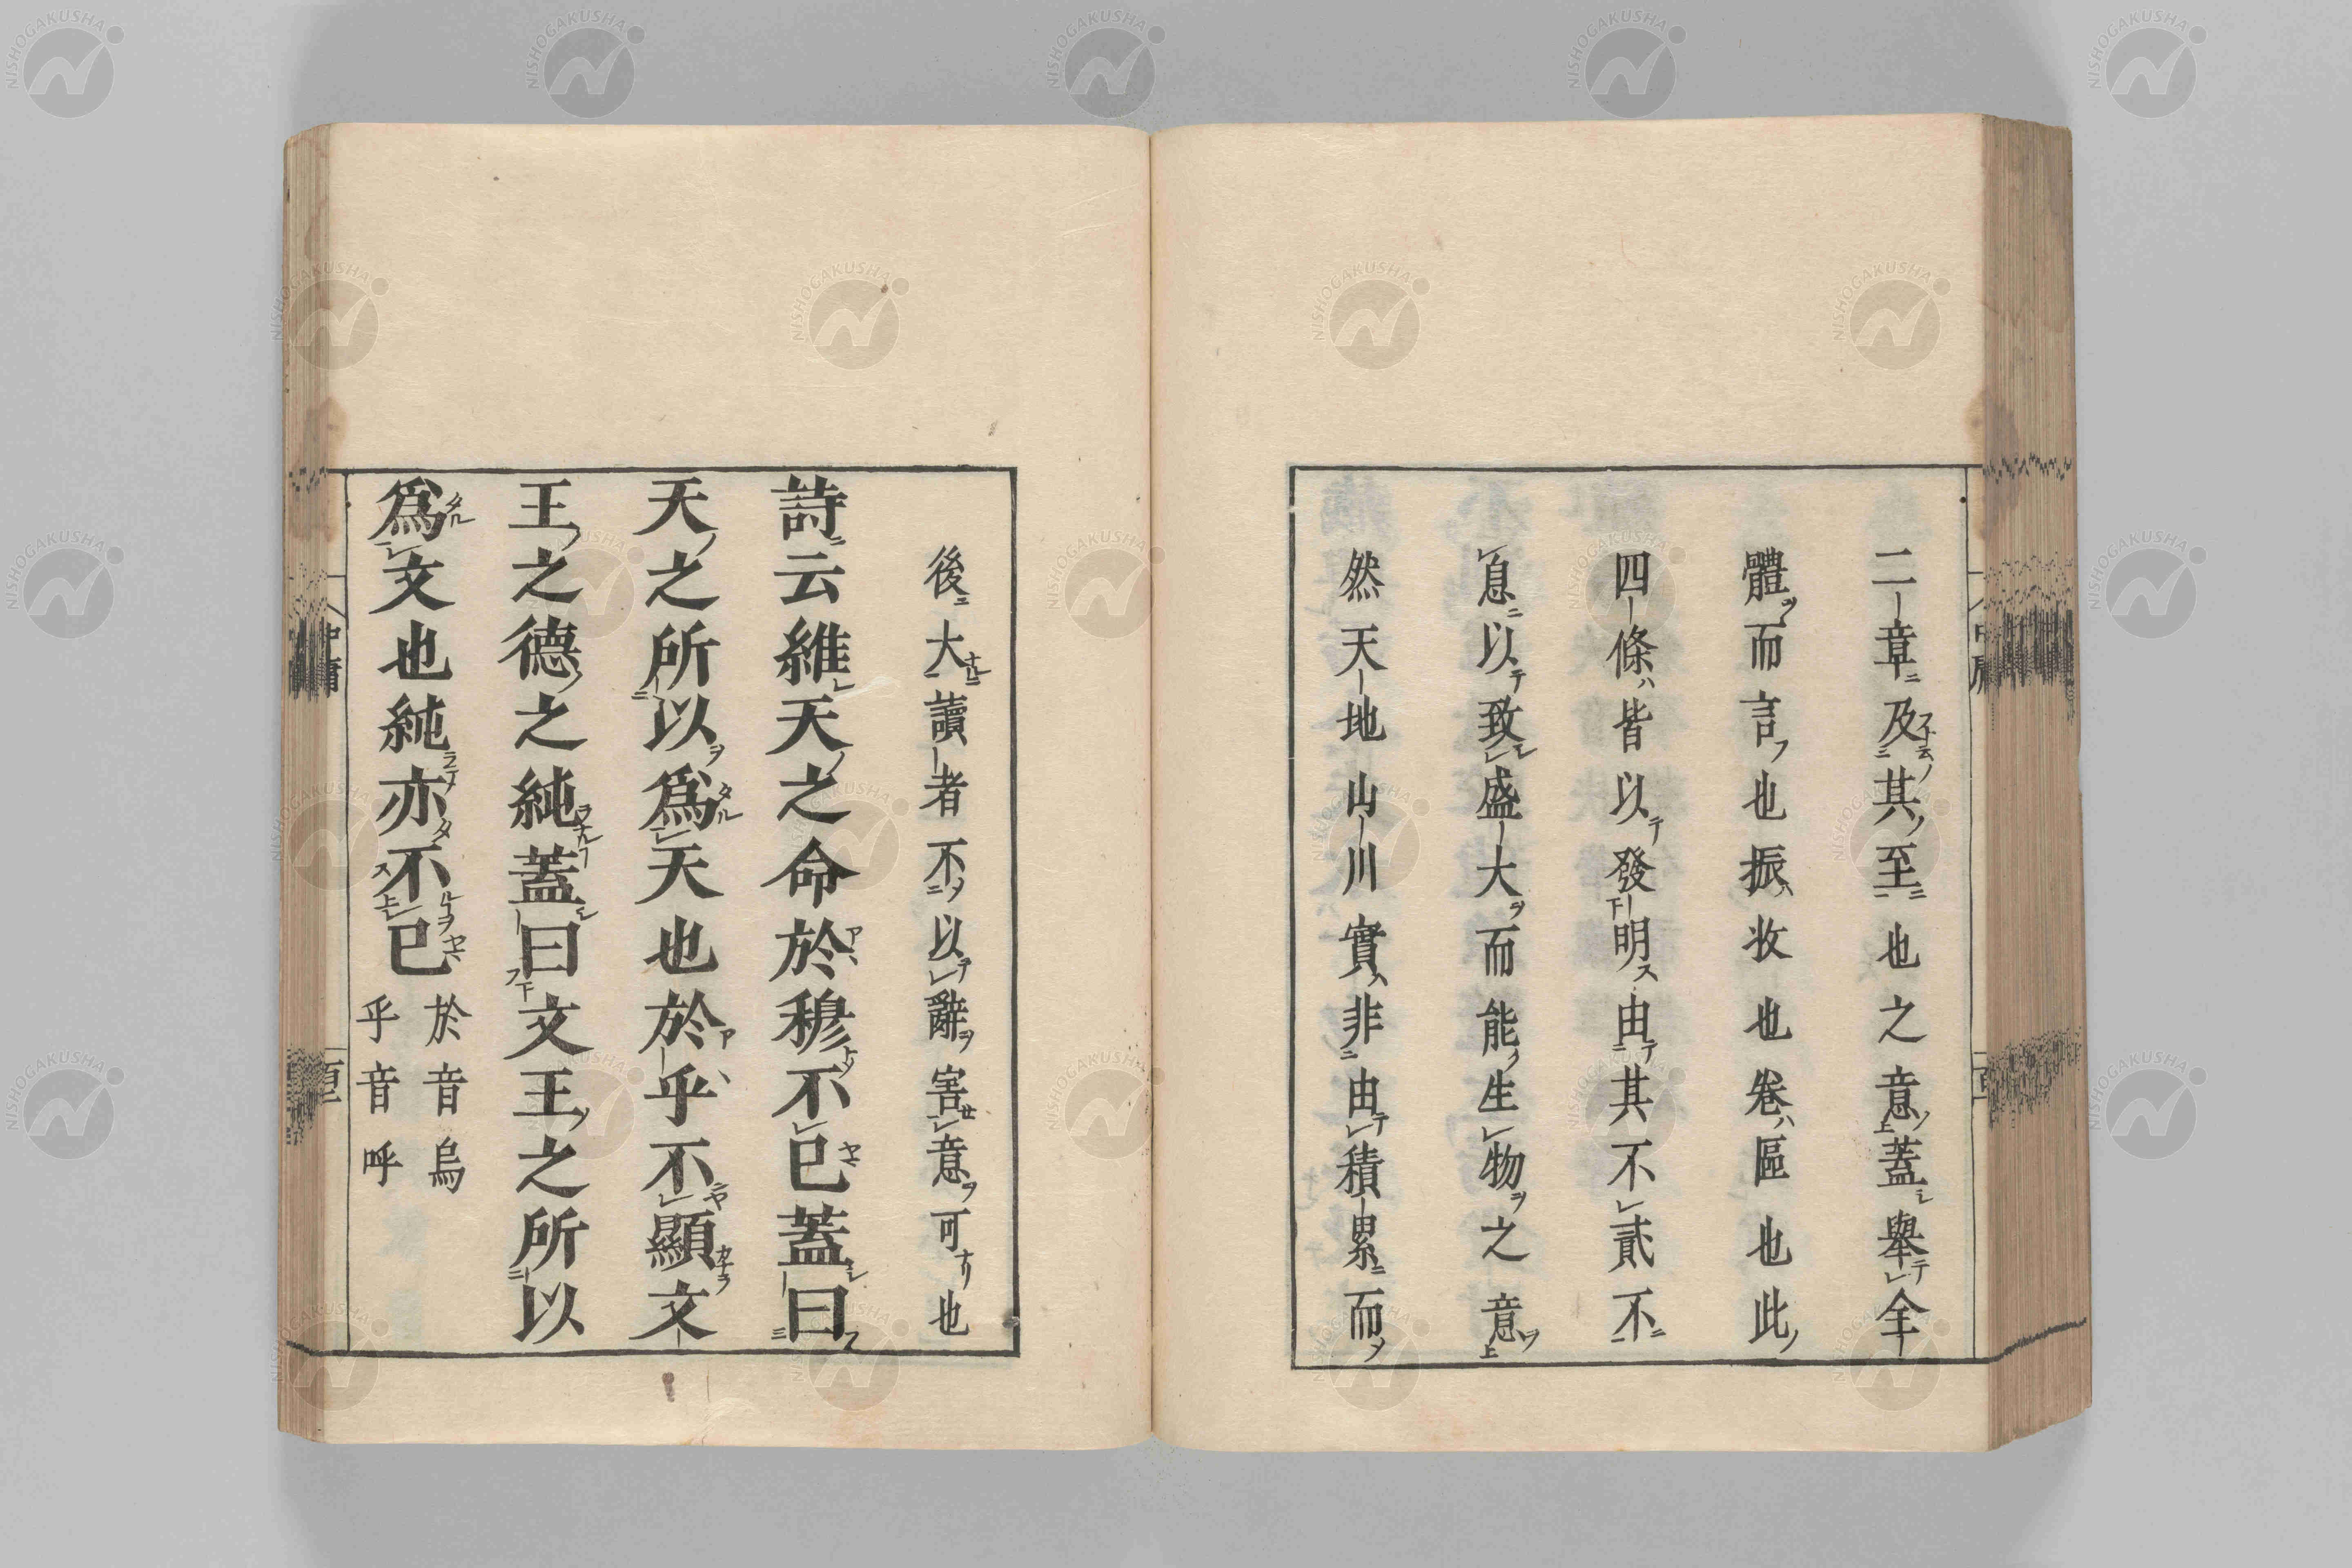 二章及其至也之意蓋舉全
體而言也振收也卷區也此
四條皆以發明由其不貳不
息以致盛大而能生物之意
然天地山川實非由積累而
後大讀者不以辭害意可也
詩云維天之命於穆不已蓋曰
天之所以爲天也於乎不顯文
王之德之純蓋曰文王之所以
爲文也純亦不已
於音烏
乎音呼
中庸
NISHOGAKUSHA